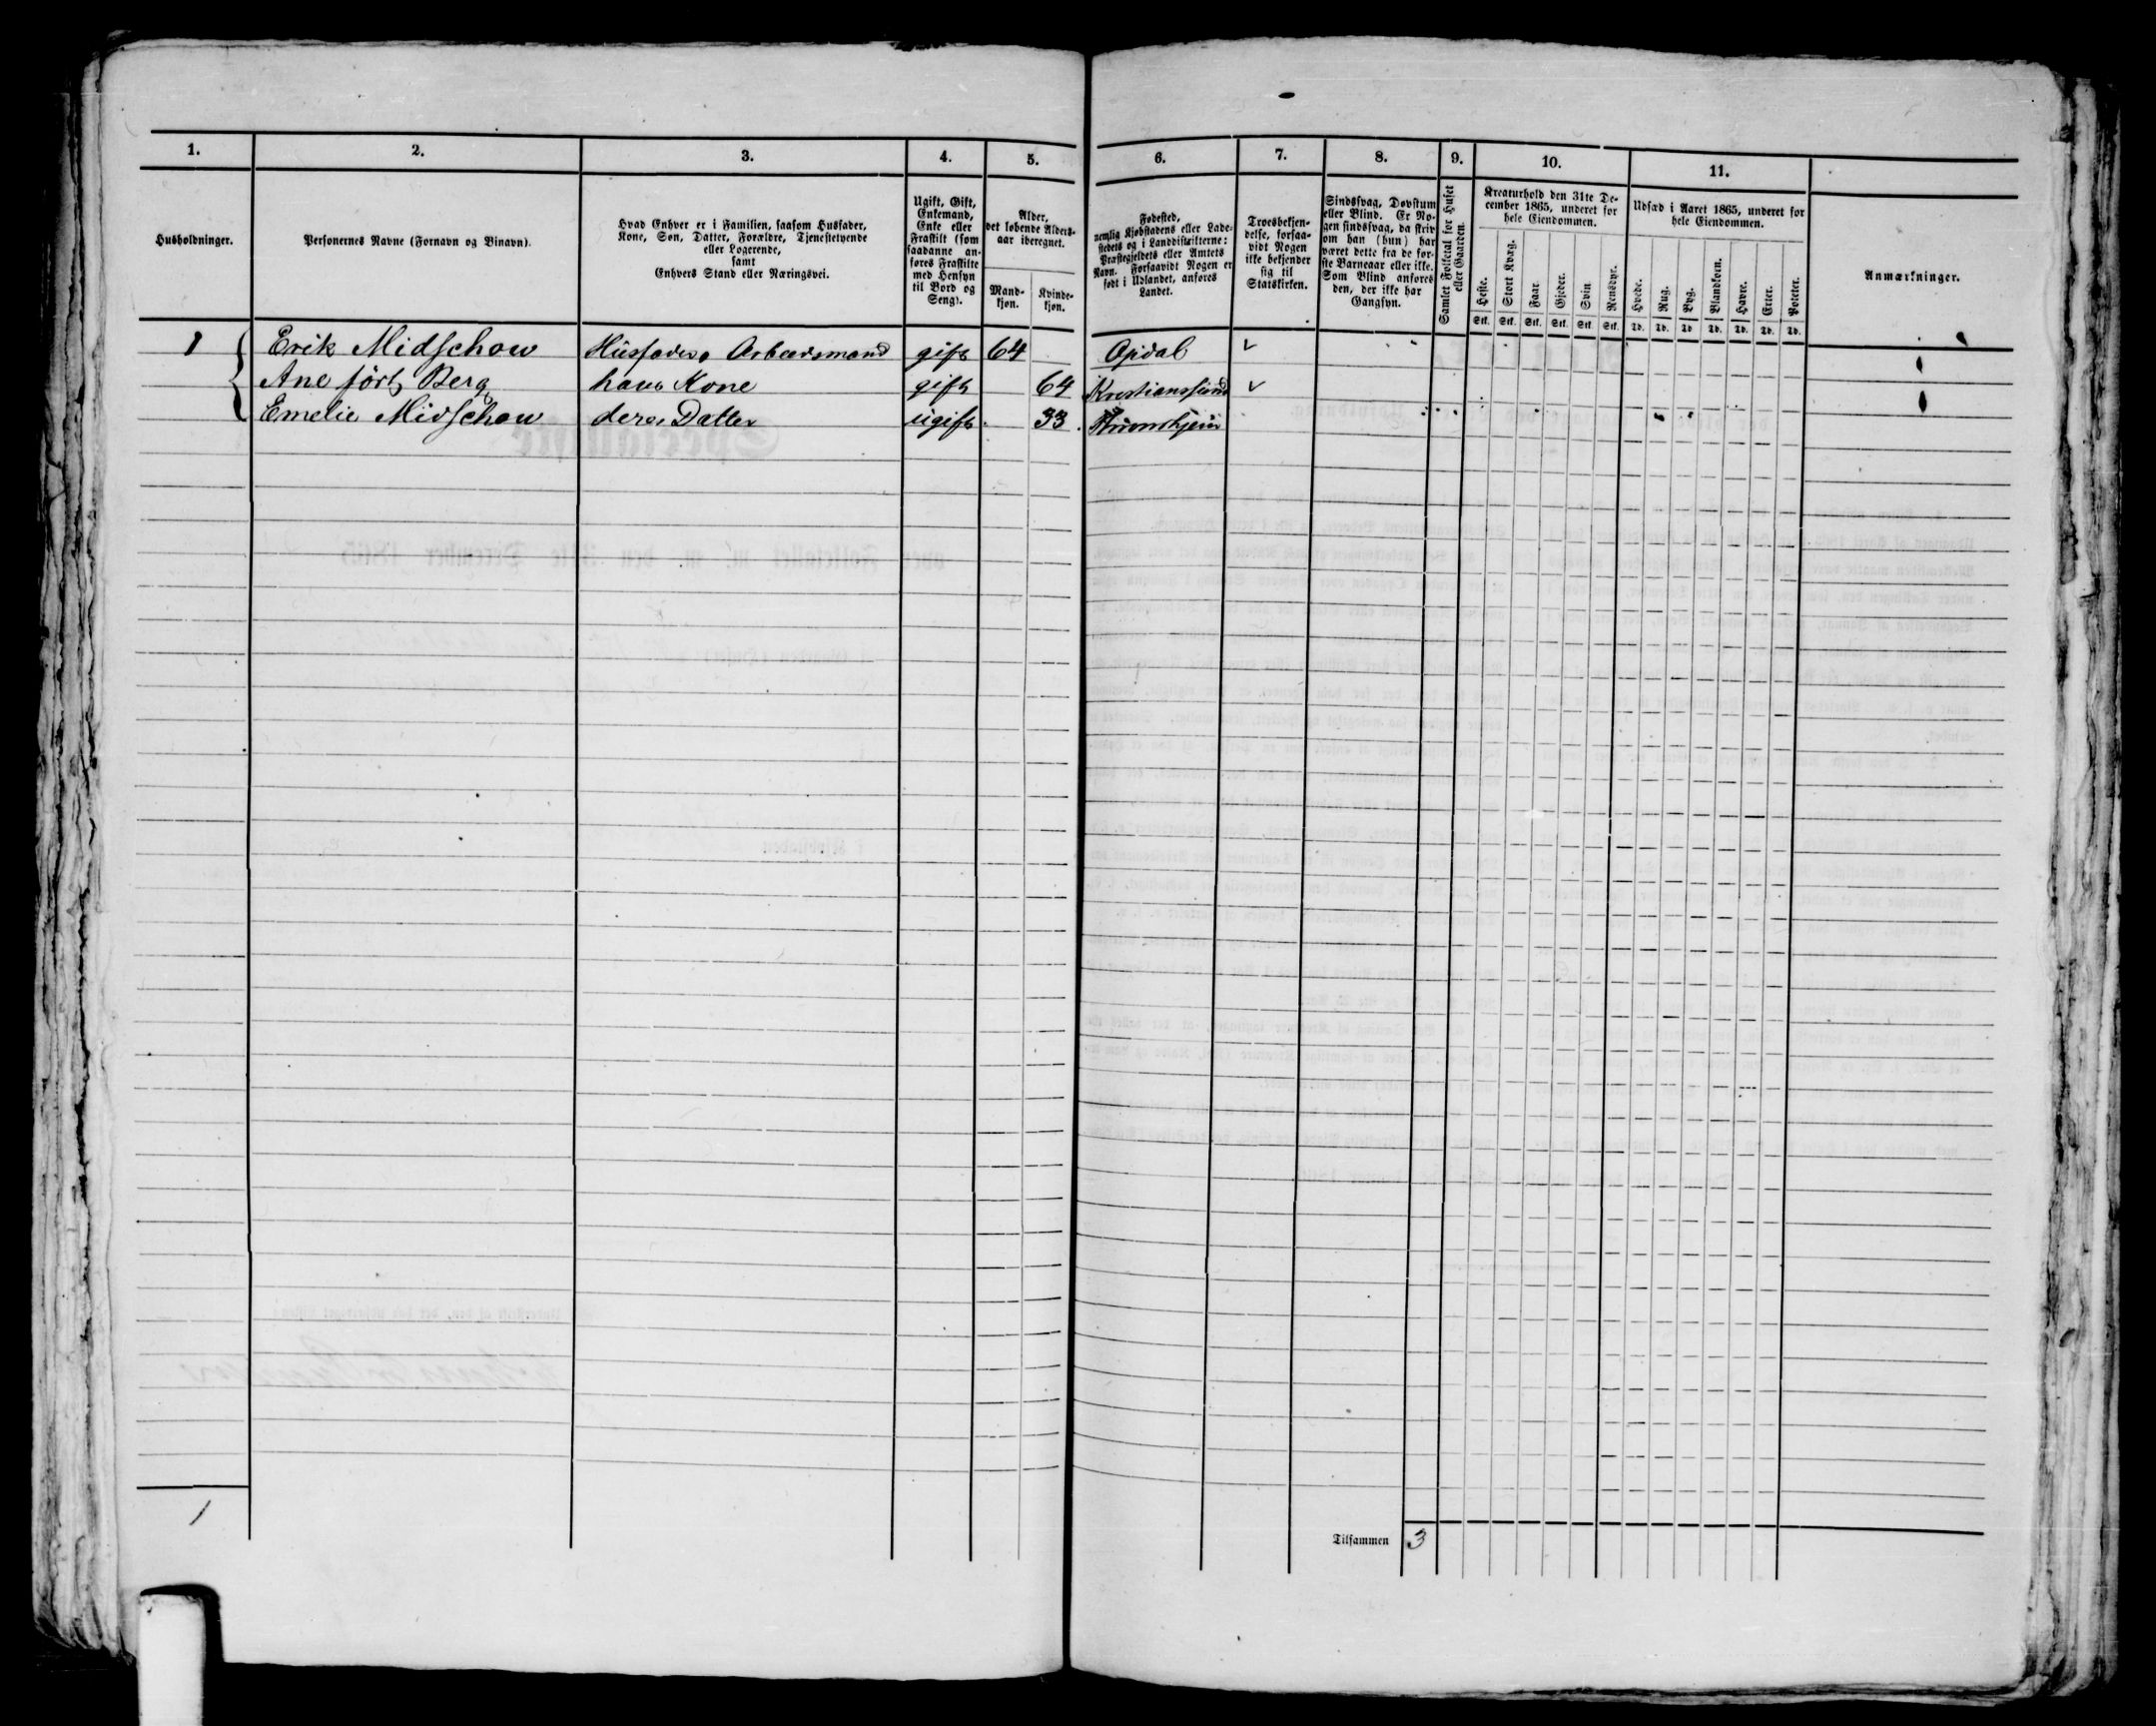 1. 2. 3. 4. 5. 6. 7. 8. 9. 10. 11.
Husholdninger.
Personernes Navne (Fornavn og Binavn).
Hvad Enhver er i Familien, saasom Husfader,
Kone, Søn, Datter, Forældre, Tjenestetyende
eller Logerende,
samt
Enhvers Stand eller Næringsvei.
Ugift, Gift,
Enkemand,
Enke eller
Fraskilt (som
saadanne an-
føres Fraskilte
med Hensyn
til Bord og
Seng).
Alder,
det løbende Alders-
aar iberegnet.
Mand-
kjøn.
Kvinde-
kjøn.
Fødested,
nemlig Kjøbstadens eller Lade-
stedets og i Landdistrikterne:
Præstegjeldets eller Amtets
Navn. Forsaavidt Nogen er
født i Udlandet, anføres
Landet.
Troesbekjen-
delse, forsaa-
vidt Nogen
ikke bekjender
sig til
Statskirken.
Sindssvag, Døvstum
eller Blind. Er No-
gen sindssvag, da skriv
om han (hun) har
været dette fra de før-
ste Barneaar eller ikke.
Som Blind anføres
den, der ikke har
Gangsyn.
Samlet Folketal for Huset
eller Gaarden.
Kreaturhold den 31te De-
cember 1865, underet for
hele Eiendommen.
Heste. Stort Kvæg. Faar. Gjeder. Svin. Rensdyr.
Stk. Stk. Stk. Stk. Stk. Stk.
Udsæd i Aaret 1865, underet for
hele Eiendommen.
Hvede. Rug. Byg. Blandkorn. Havre. Erter. Poteter.
Td. Td. Td. Td. Td. Td. Td.
Anmærkninger.
1 Erik Midschow Husfader, Arbeidsmand gift 64 Opdal
Ane født Berg hans Kone gift 64 Krestianssund
Emelie Midschow deres Datter ugift 33
1 Tilsammen 3